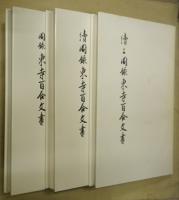 図録東寺百合文書
続図録東寺百合文書
続々図録東寺百合文書